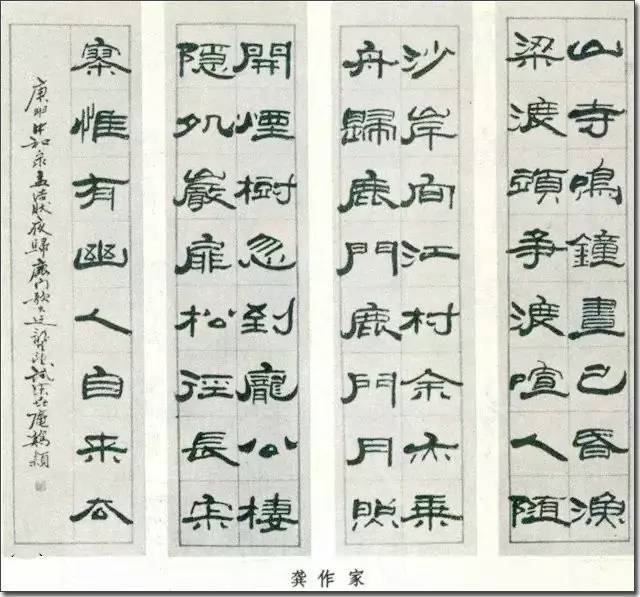 山寺鳴鐘晝已昏漁
梁渡頭爭渡喧人隨
沙岸向江村余亦乘
舟歸鹿門鹿門月照
開煙樹忽到龐公棲
隱処巖扉松徑長寂
寥惟有幽人自来去
孟浩然夜歸鹿門歌
龚作家